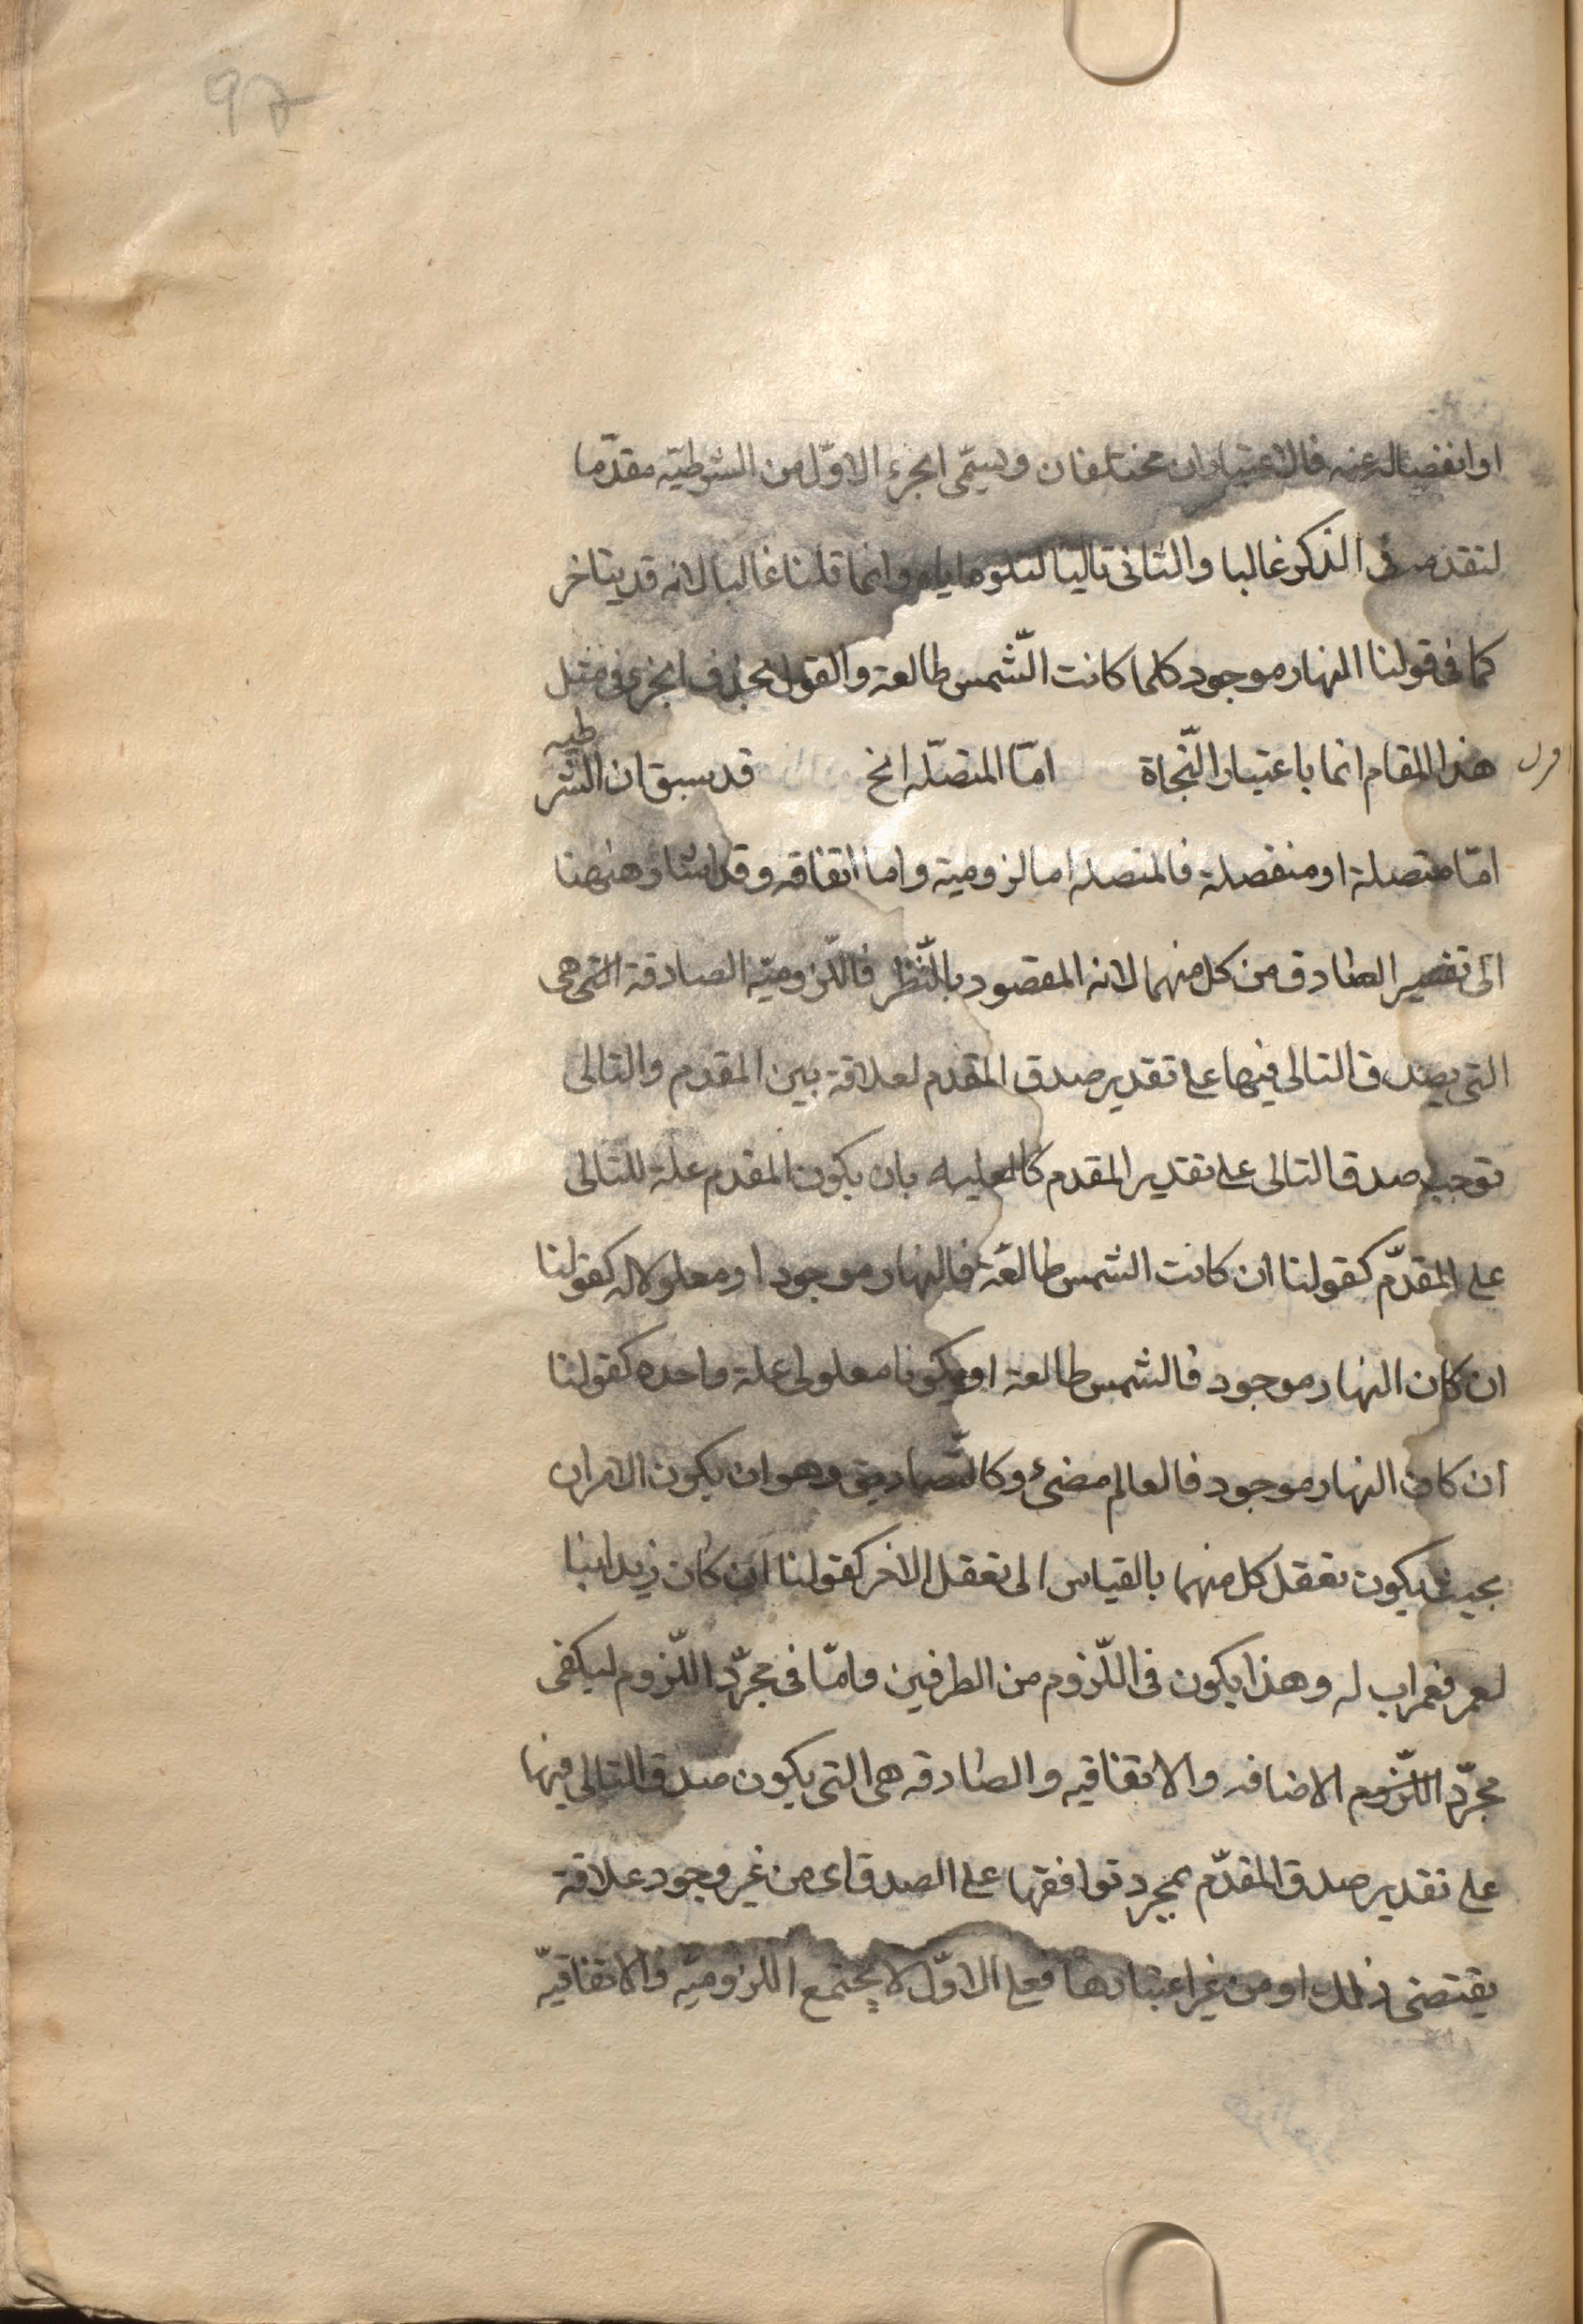 97
او انفصاله عنه فالاعتباران مختلفان ويسمّى الجزء الاوّل من الشرطيّه مقدّما
لتقدمه فى الذكر غالبا والثانى تاليا لتلوه اياه وانما قلنا غالبا لانه قد يتاخر
كما فى قولنا النهار موجود كلما كانت الشّمس طالعة والقول بحذف الجزء فى مثل
هذا المقام انما باعتبار النّجاة امّا المتصّله الخ قد سبق ان الشرطيه
امّا متصلة او منفصلة فالمتصله اما لزومية واما اتفاقه وقد اشار ههنا
الى تفسير الصادق من كل منهما لانه المقصود بالنّظر فاللّزوميّة الصادقة التى هى
التى يصدق التالى فيها على تقدير صدق المقدم لعلاقة بين المقدم والتالى
توجب صدق التالى على تقدير المقدم كالعليه بان يكون المقدم علة للتالى
على المقدّم كقولنا ان كانت الشمس طالعة فالنهار موجود او معلولا له كقولنا
ان كان النهار موجود فالشمس طالعة او يكونا معلولى علة واحده كقولنا
ان كان النهار موجود فالعالم مضىء وكالتّضايق وهو ان يكون الامران
بحيث يكون تعقل كل منهما بالقياس الى تعقل الاخر كقولنا ان كان زيد ابنا
لعمر فعمر اب له وهذا يكون فى اللّزوم من الطرفين وامّا فى مجرّد اللّزوم ليكفى
مجرّد اللّزوم الاضافه والاتفاقيه والصادقه هى التى يكون صدق التالى فيها
على تقدير صدق المقدّم بمجرد توافقها على الصدق اى من غير وجود علاقة
يقتضى ذلك او من غير اعتبارها فعلى الاوّل لا يجتمع اللزوميّه والاتفاقيّه